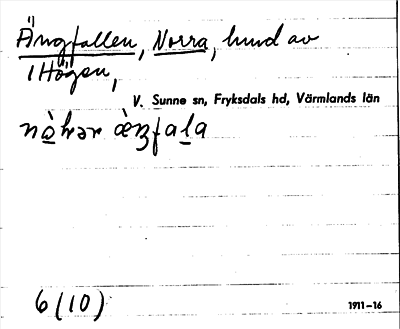 Ängfallen, Norra, hmd av
1 Högen,
V. Sunne sn, Fryksdals hd, Värmlands län
6 (10)
1911–16